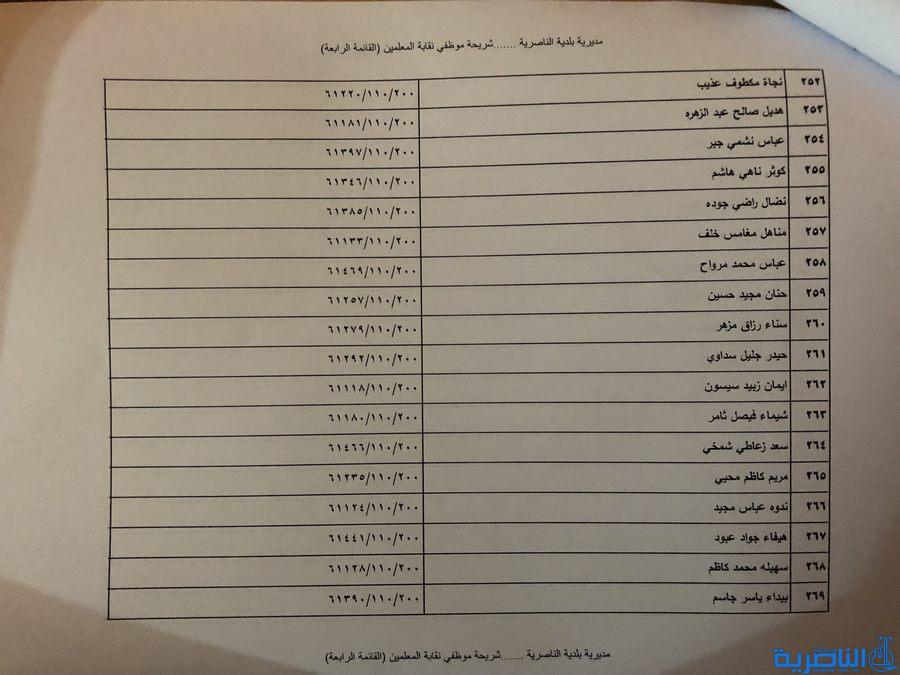 مديرية بلدية الناصرية .......شريحة موظفي نقابة المعلمين (القائمة الرابعة)
٢٥٢ نجاة مكطوف عذيب ٦١٢٢٠/١١٠/٢٠٠
٢٥٣ هديل صالح عبد الزهره ٦١١٨١/١١٠/٢٠٠
٢٥٤ عباس نشمي جبر ٦١٣٩٧/١١٠/٢٠٠
٢٥٥ كوثر ناهي هاشم ٦١٣٤٦/١١٠/٢٠٠
٢٥٦ نضال راضي جوده ٦١٣٨٥/١١٠/٢٠٠
٢٥٧ مناهل مغامس خلف ٦١١٣٣/١١٠/٢٠٠
٢٥٨ عباس محمد مرواح ٦١٤٦٩/١١٠/٢٠٠
٢٥٩ حنان مجيد حسين ٦١٢٥٧/١١٠/٢٠٠
٢٦٠ سناء رزاق مزهر ٦١٢٧٩/١١٠/٢٠٠
٢٦١ حيدر جليل سداوي ٦١٢٩٢/١١٠/٢٠٠
٢٦٢ ايمان زبيد سيسون ٦١١١٨/١١٠/٢٠٠
٢٦٣ شيماء فيصل ثامر ٦١١٨٠/١١٠/٢٠٠
٢٦٤ سعد زعاطي شمخي ٦١٤٦٦/١١٠/٢٠٠
٢٦٥ مريم كاظم محيي ٦١٢٣٥/١١٠/٢٠٠
٢٦٦ ندوه عباس مجيد ٦١١٢٤/١١٠/٢٠٠
٢٦٧ هيفاء جواد عبود ٦١٤٤١/١١٠/٢٠٠
٢٦٨ سهيله محمد كاظم ٦١١٢٨/١١٠/٢٠٠
٢٦٩ بيداء ياسر جاسم ٦١٣٩٠/١١٠/٢٠٠
مديرية بلدية الناصرية .......شريحة موظفي نقابة المعلمين (القائمة الرابعة)
الناصرية